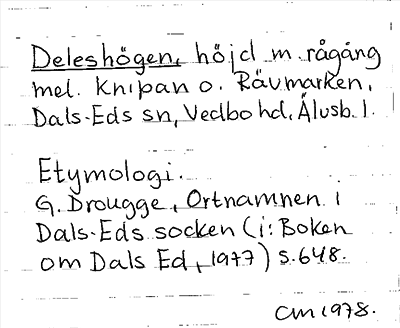 Deleshögen, höjd m. rågång
mel. Knipan o. Rävmarken,
Dals-Eds sn, Vedbo hd, Älvsb. l.
Etymologi.
G. Drougge, Ortnamnen i
Dals-Eds socken (i: Boken
om Dals Ed, 1977) s. 648.
CM 1978.